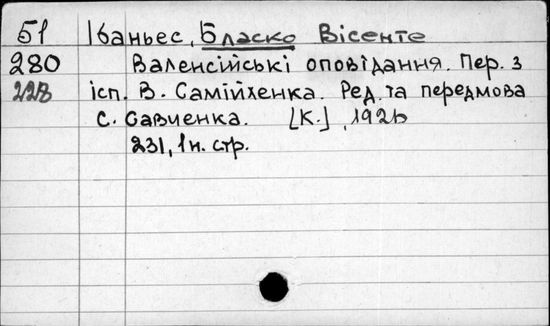 Б1 Ібаньєс, Бласко Вісенте
280 Валенсійські оповідання. Пер. з
228 ісп. В. Самійленка. Ред. та передмова
С. Савченка. [К.], 1926
231, 1 н. стр.